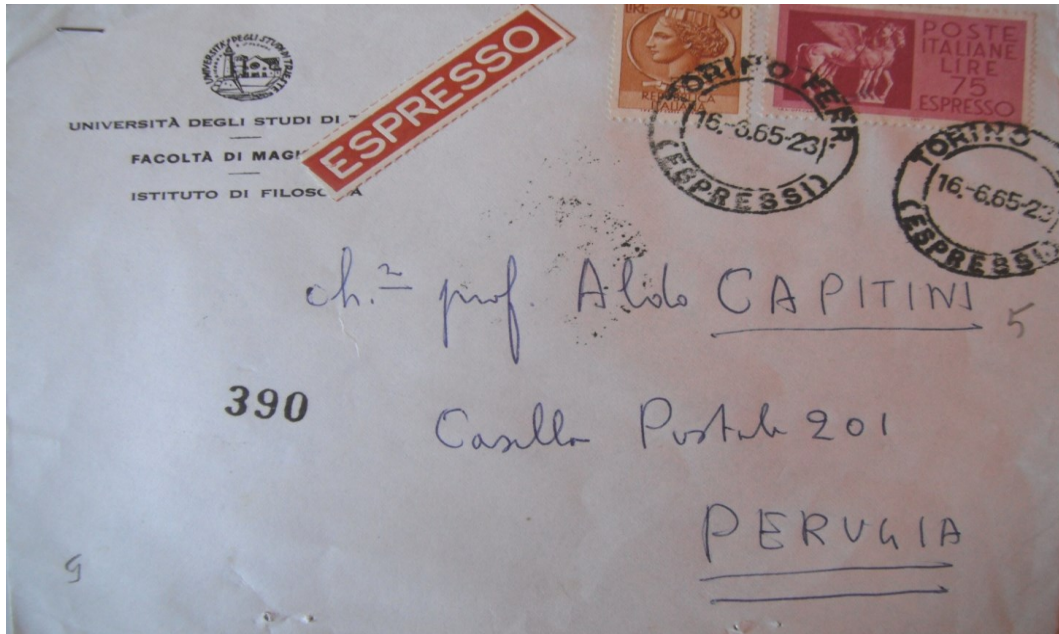 UNIVERSITÀ DEGLI STUDI DI TRIESTE
UNIVERSITÀ DEGLI STUDI DI
FACOLTÀ DI
ISTITUTO DI
ESPRESSO
LIRE 30
REPUBBLICA
ITALIANA
POSTE
ITALIANE
LIRE
75
ESPRESSO
TORINO FERR.
16.-6.65-23
(ESPRESSI)
TORINO
16.-6.65-23
(ESPRESSI)
ch.º prof. Aldo CAPITINI
5
390
Casella Postale 201
PERUGIA